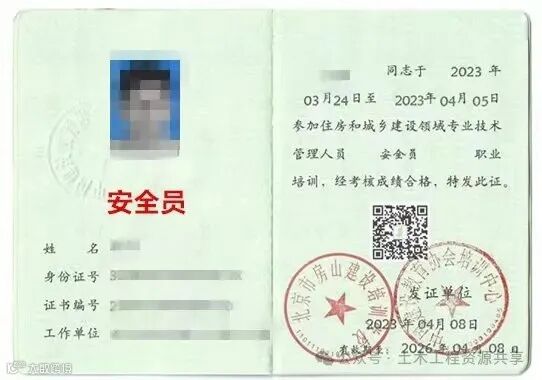 安全员
姓 名
身份证号 3
证书编号 2
工作单位
同志于 2023 年
03月24日至 2023年04月05日
参加住房和城乡建设领域专业技术
管理人员 安全员 职业
培训，经考核成绩合格，特发此证。
北京市房山建设培训学校
协会培训中心
发证单位
2023年04月08日
有效期至: 2026年04月08日
公众号·土木工程资源共享
大数跨境